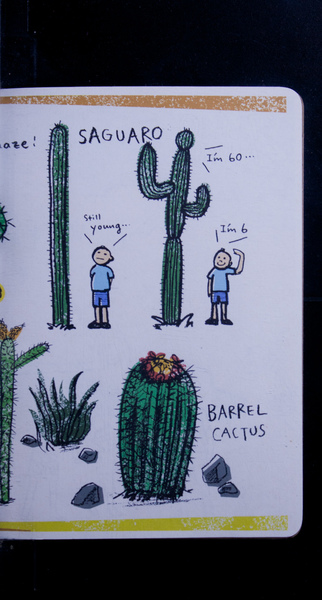 SAGUARO
I'm 60...
Still
young...
I'm 6
BARREL
CACTUS